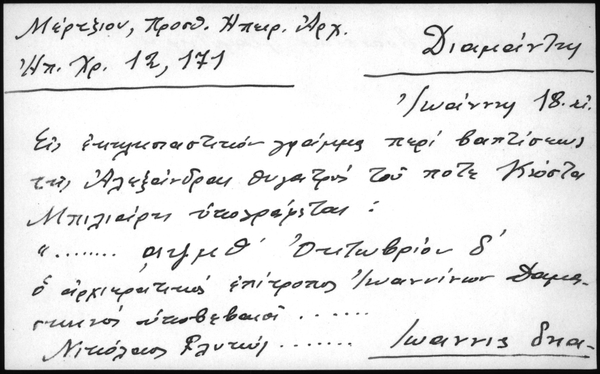 Μέρτζιου, Προσθ. Ηπειρ. Αρχ.
Ηπ. Χρ. 12, 171
Διαμάντη
Ἰωάννη 18. αἰ.
Εἰς ἐκκλησιαστικόν γράμμα περί βαπτίσεως
τῆς Ἀλεξάνδρας θυγατρός τοῦ ποτε Κώστα
Μπιλιάρη ὑπογράφεται :
" ....... αψμθ' Ὀκτωβρίου δ'
ὁ ἀρχιερατικός ἐπίτροπος Ἰωαννίνων Δαμα-
σκηνός ὑποβεβαιοῖ .......
Νικόλαος Γλυκύς ....... Ιωαννις δηα-